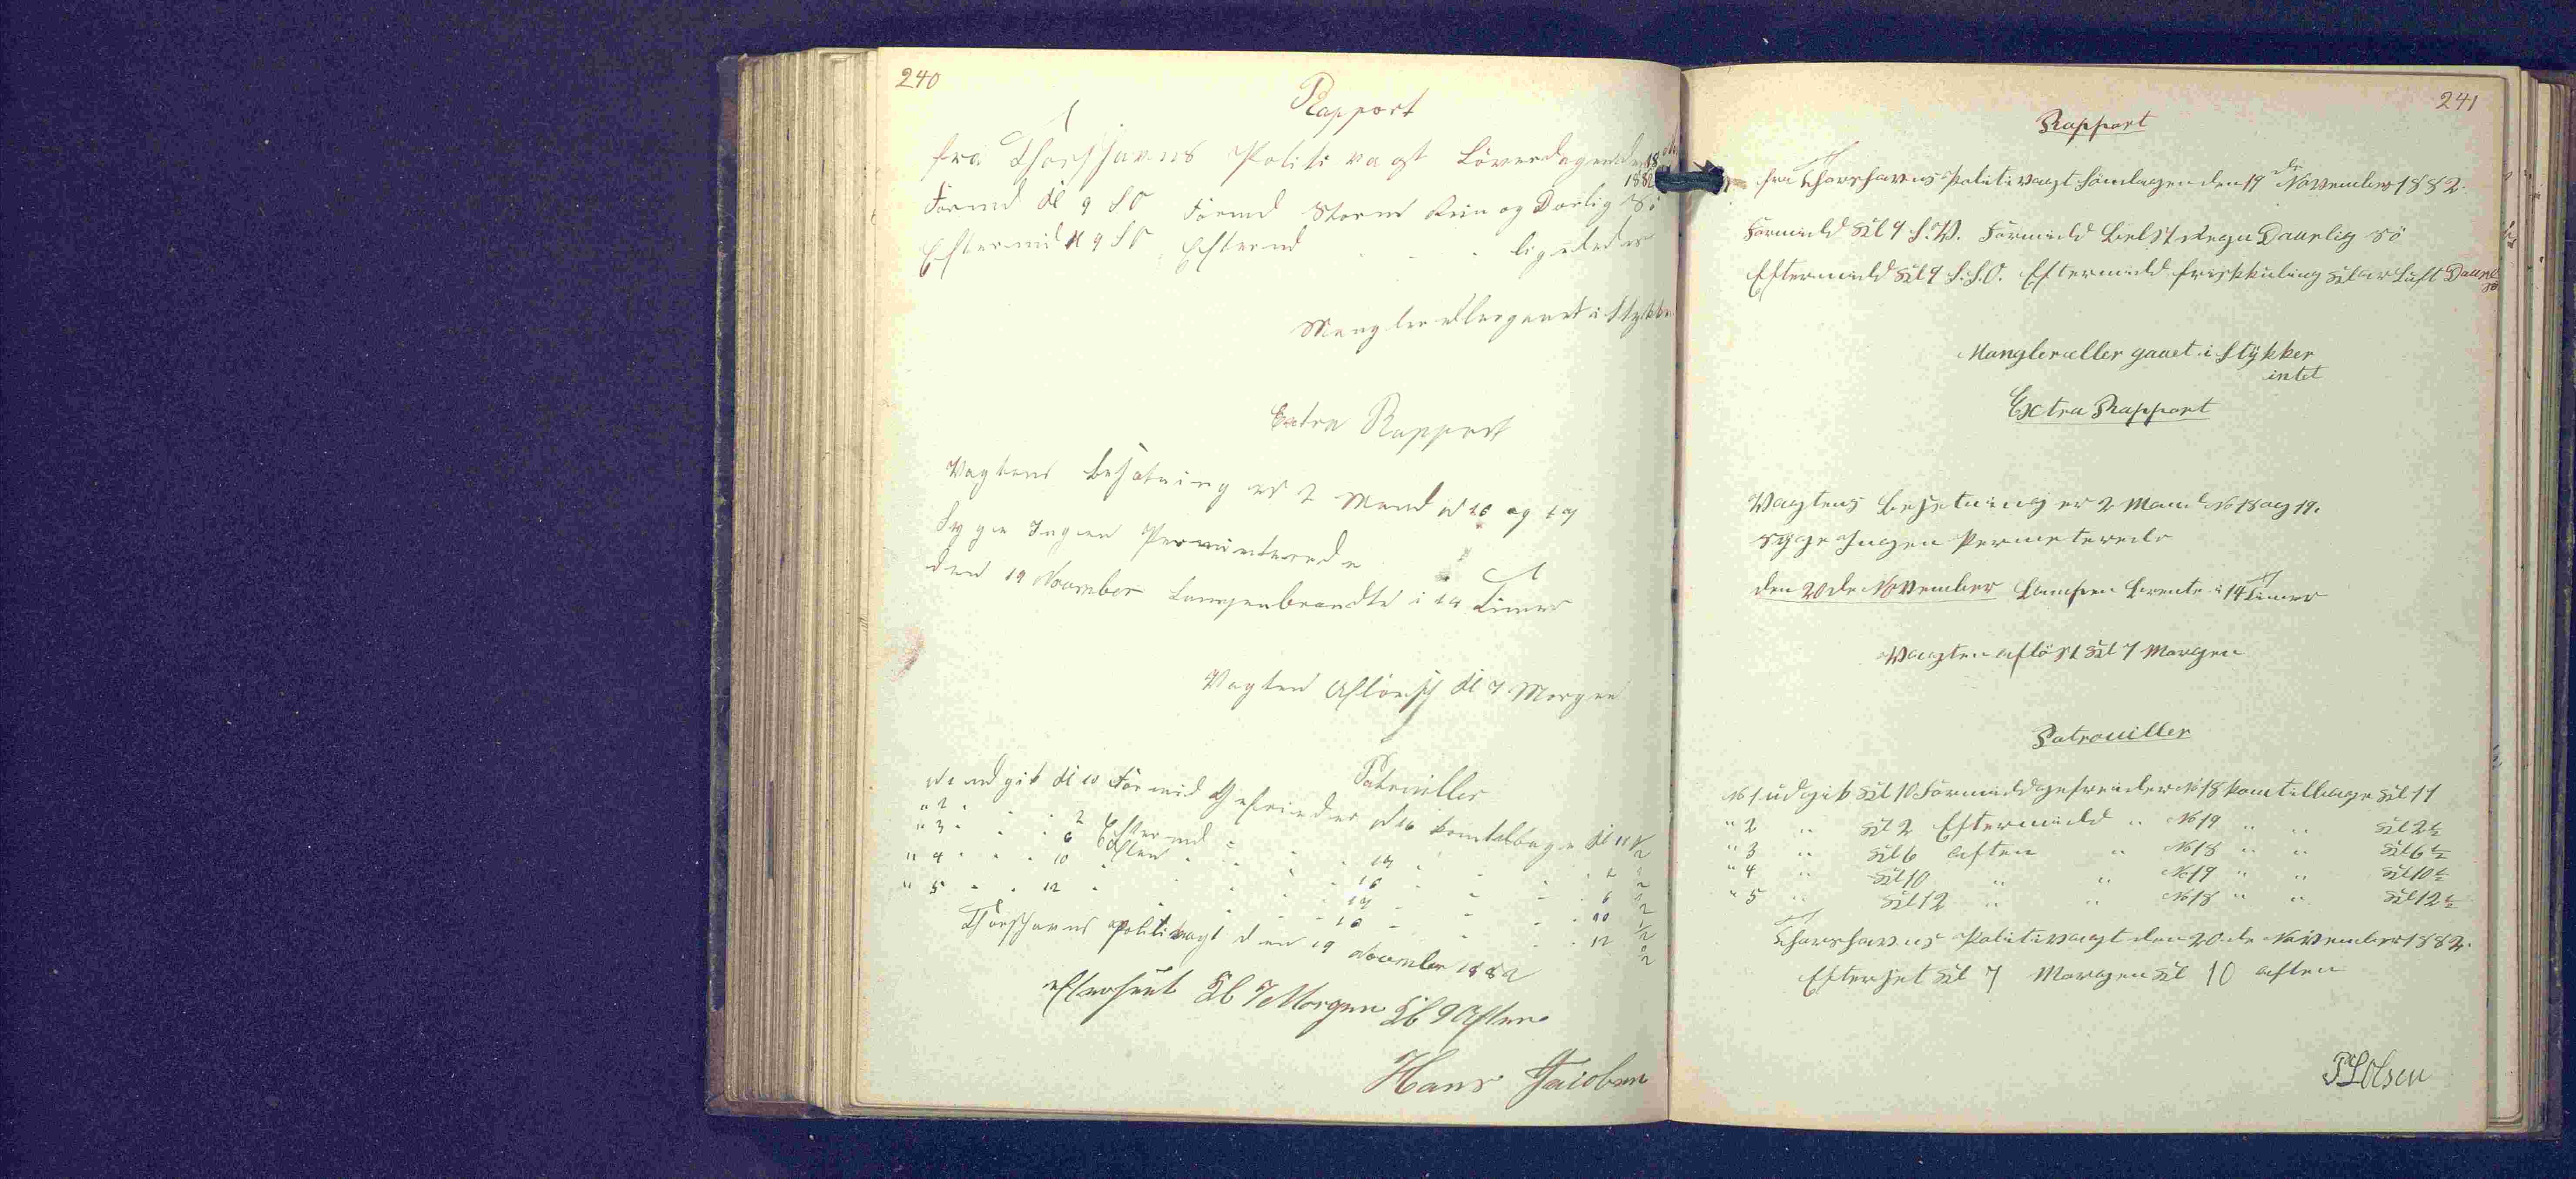 240
Rapport
fra Thorshavns Politivagt Löverdagen den 18
1882
Formd Kl 9 S O Formd Storm Rein og Dorlig Sö
Eftermid Kl 9 S O Eftermd " " ligeledes
Mangler eller gaaet i Stykker
Extra Rapport
Vagtens Besatning er 2 Mand No 16 og 17
Syge Ingen Permenterende
den 19 November Lampen brendte i 14 Timer
Vagten Aflöest Kl 7 Morgen
Patruiller
No 1 udgik Kl 10 Formid Gefreider No 16 kom tilbage Kl 11 1/2
" 2 " " 2 Eftermd " " 17 " " 2 1/2
" 3 " " 6 Aften " " 16 " " 6 1/2
" 4 " " 10 " " " 17 " " 10 1/2
" 5 " " 12 " " " 16 " " 12 1/2
Thorshavns Politivagt den 19 November 1882
Efterseet Kl 7 Morgen Kl 9 Aften
Hans Jacobsen
241
Rapport
fra Thorshavns Politivagt Söndagen den 19 de November 1882.
Formidd Kl 9 S.V. Formidd Regn Daarlig Sö
Eftermidd Kl 9 S.S.O. Eftermidd frisk Kuling Klar Luft Daarl
Sö
Mangler eller gaaet i Stykker
intet
Extra Rapport
Vagtens Besetning er 2 Mand No 18 og 19.
Syge Ingen Permeterede
den 20 de November Lampen brente i 14 Timer
Vagten aflöst Kl 7 Morgen
Patrouiller
No 1 udgik Kl 10 Formidd gefreider No 18 kom tilbage Kl 11
" 2 " Kl 2 Eftermidd " No 19 " " Kl 2 1/2
" 3 " Kl 6 Aften " No 18 " " Kl 6 1/2
" 4 " Kl 10 " " No 19 " " Kl 10 1/2
" 5 " Kl 12 " " No 18 " " Kl 12 1/2
Thorshavns Politivagt den 20 de November 1882.
Efterset Kl 7 Morgen Kl 10 aften
P L Olsen